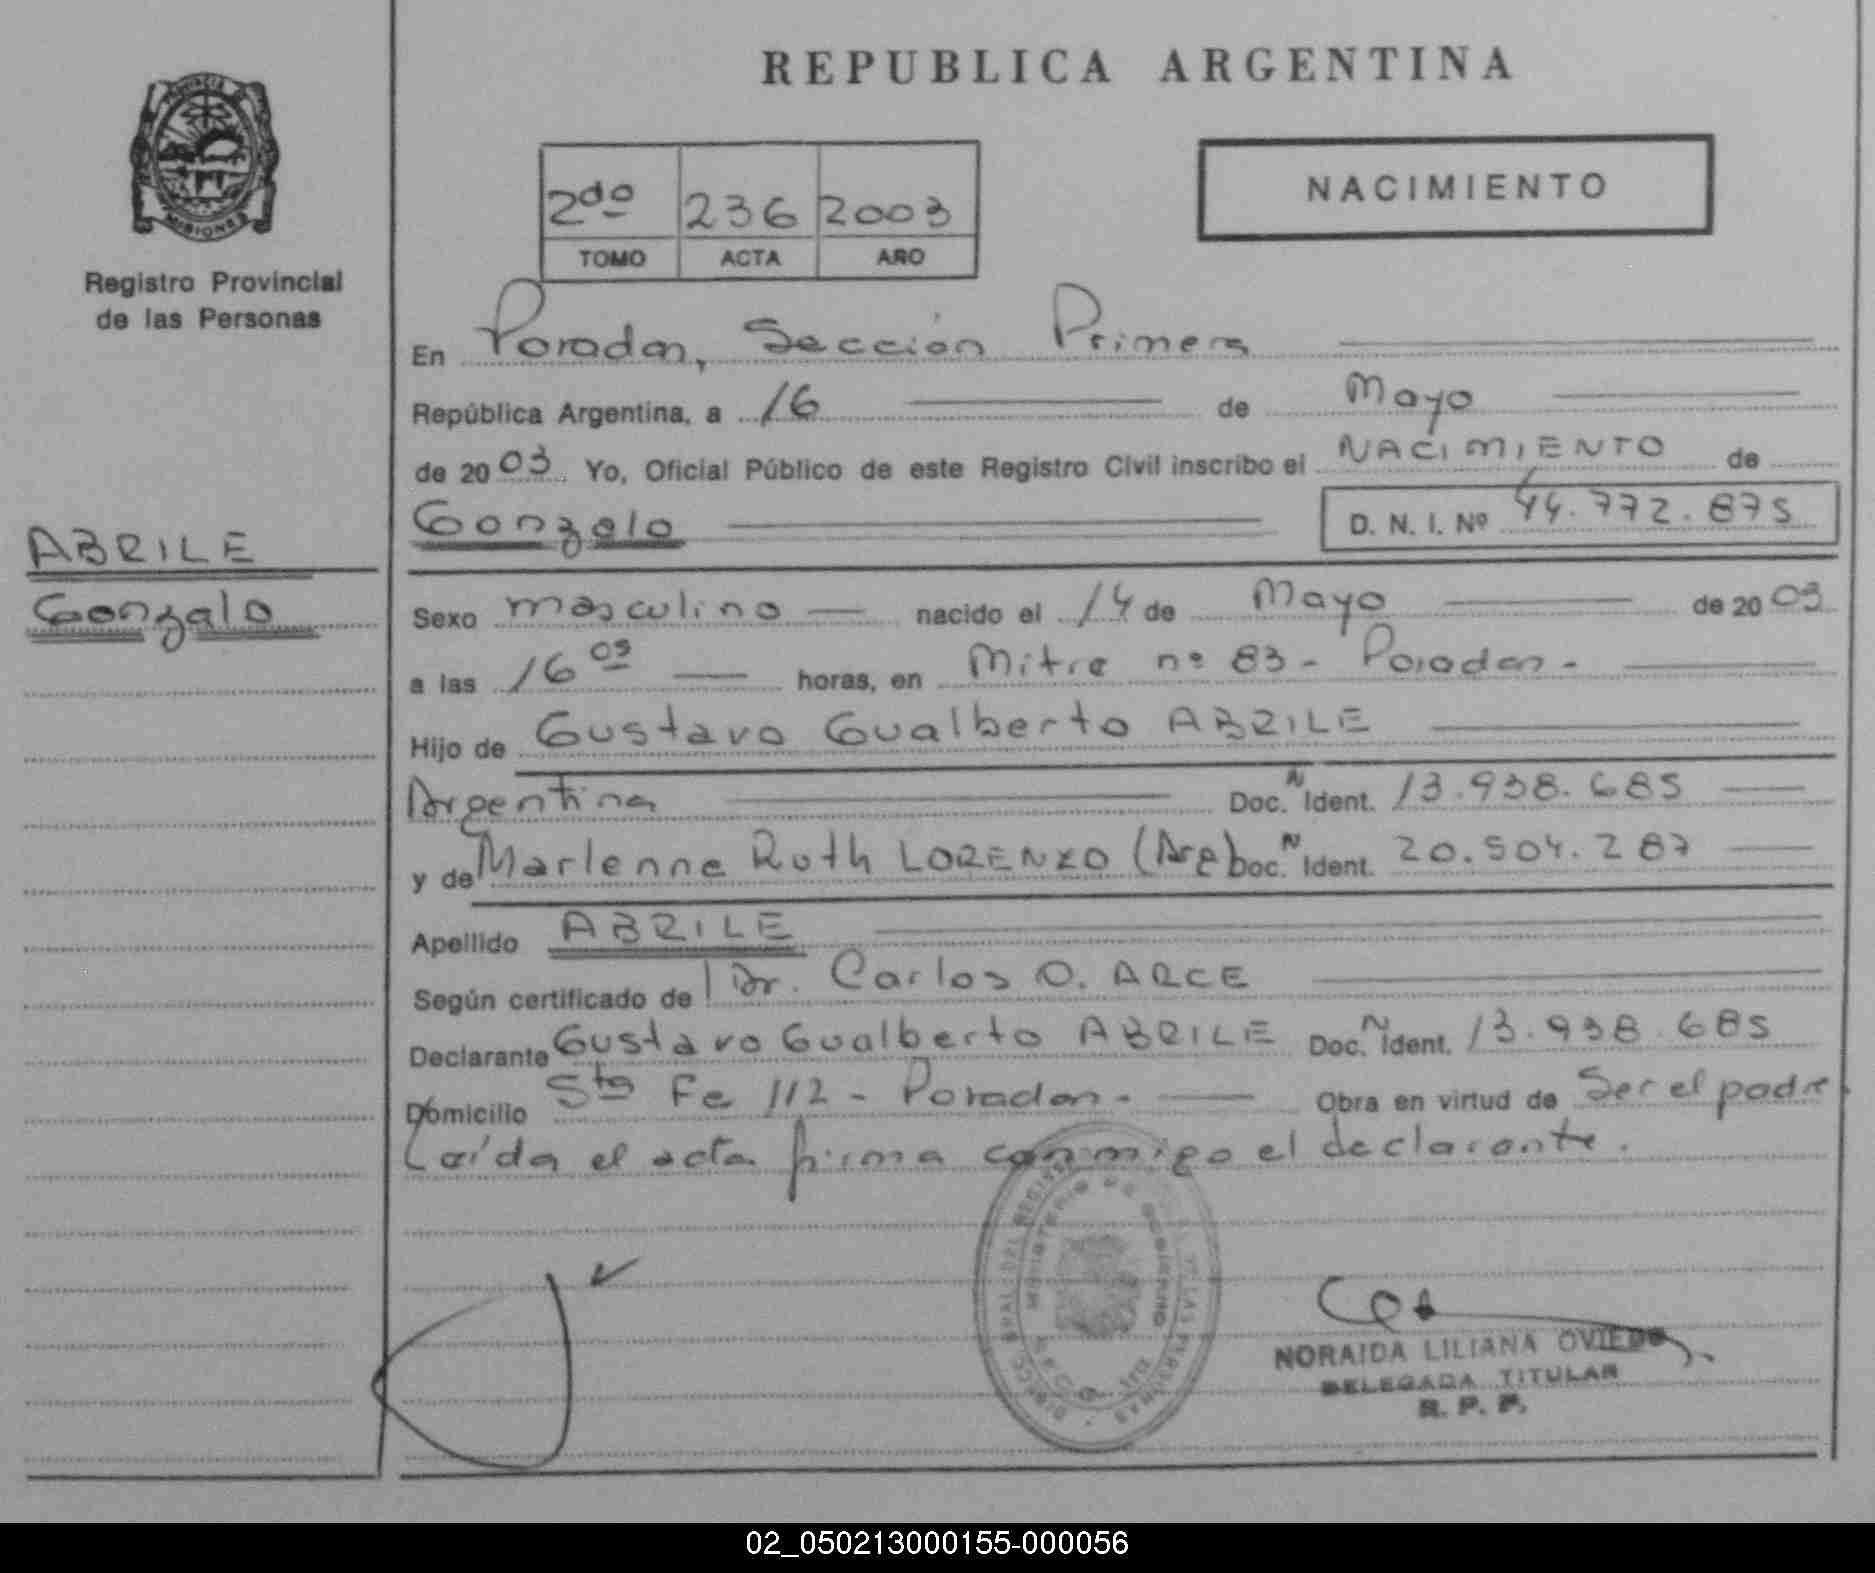 REPUBLICA ARGENTINA
PROVINCIA DE
MISIONES
Registro Provincial
de las Personas
2do 236 2003
TOMO ACTA AÑO
NACIMIENTO
En Posadas, Sección Primera
República Argentina, a 16 de Mayo
de 2003. Yo, Oficial Público de este Registro Civil inscribo el NACIMIENTO de
Gonzalo D. N. I. Nº 44.772.875
ABRILE
Gonzalo
Sexo masculino nacido el 14 de Mayo de 2003
a las 16 05 horas, en Mitre nº 83 - Posadas -
Hijo de Gustavo Gualberto ABRILE
Argentina Doc. N Ident. 13.938.685
y de Marlenne Ruth LORENZO (Arg) Doc. N Ident. 20.504.287
Apellido ABRILE
Según certificado de Dr. Carlos O. ARCE
Declarante Gustavo Gualberto ABRILE Doc. N Ident. 13.938.685
Domicilio Sta Fe 112 - Posadas - Obra en virtud de Ser el padre.
Laída el acta firma conmigo el declarante.
MINISTERIO DE GOBIERNO
NORAIDA LILIANA OVIEDO
DELEGADA TITULAR
R. P. P.
02_050213000155-000056